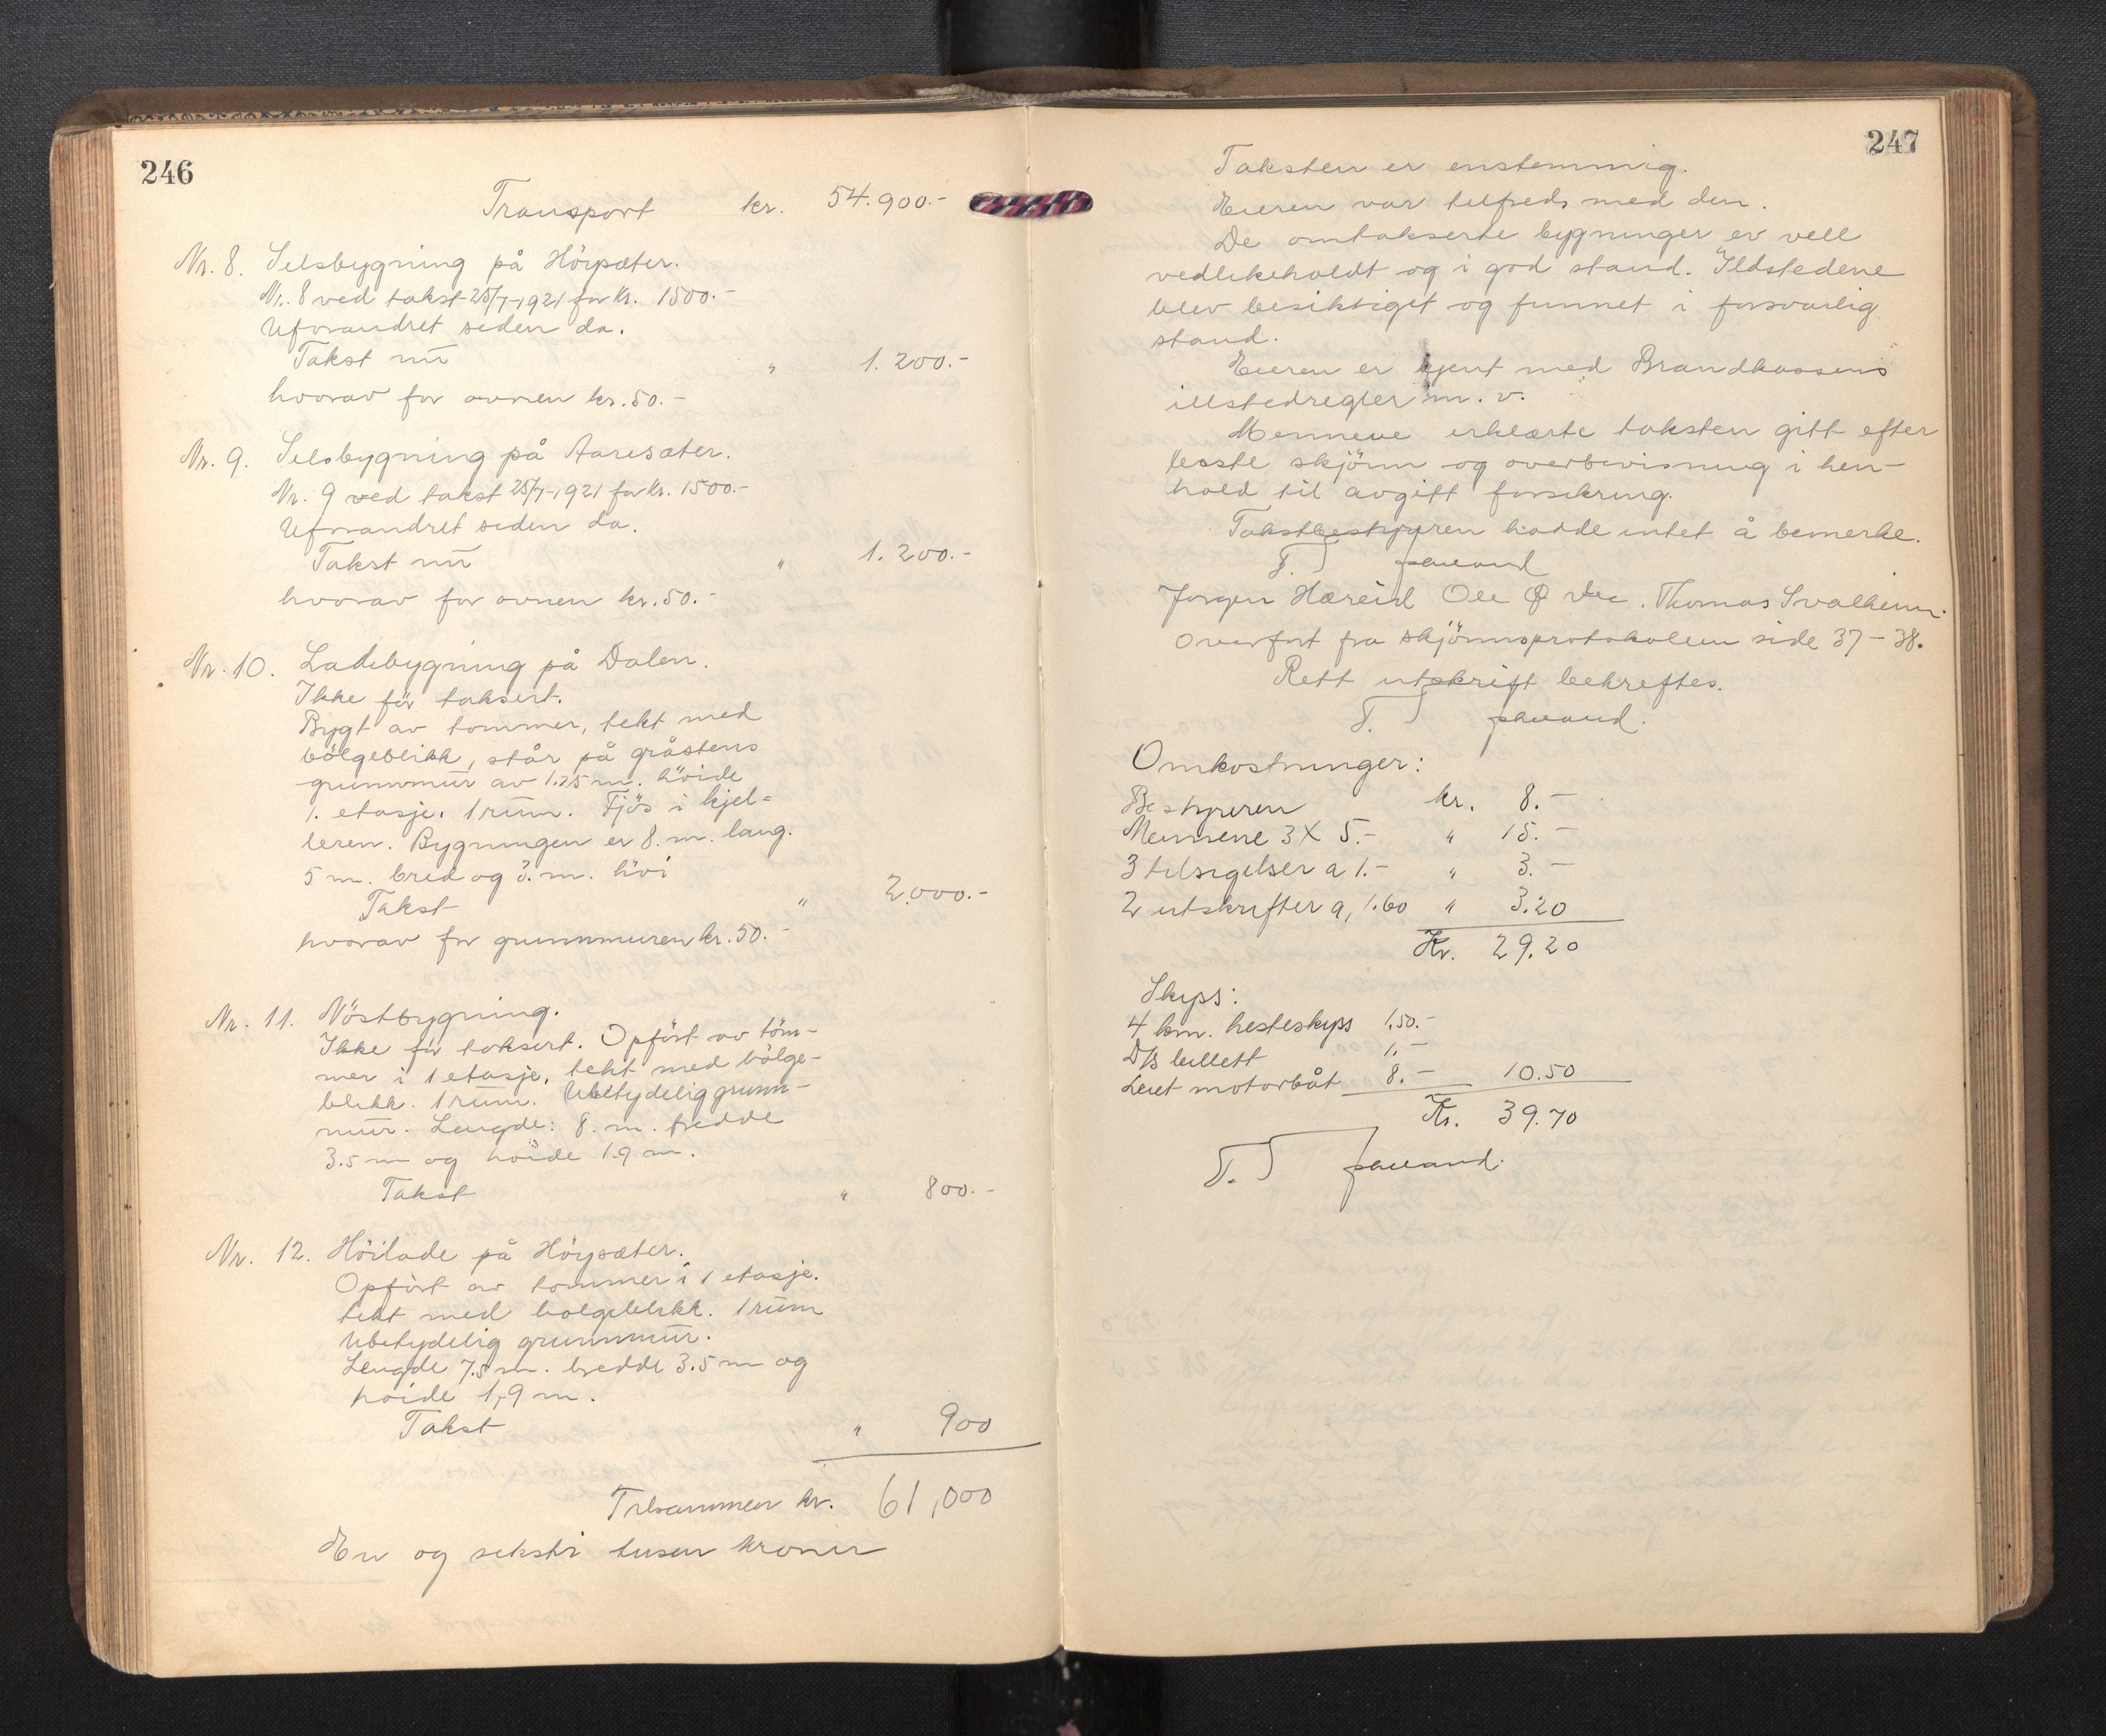 246
Transport kr. 54.900.-
Nr. 8. Selsbygning på Höysæter.
Nr. 8 ved takst 25/7-1921 for kr. 1500.-
Uforandret siden da.
Takst nu " 1.200.-
hvorav for ovnen kr. 50.-
Nr. 9. Selsbygning på Aaresæter.
Nr. 9 ved takst 25/7-1921 for kr. 1500.-
Uforandret siden da.
Takst nu " 1.200.-
hvorav for ovnen kr. 50.-
Nr. 10. Ladebygning på Dalen.
Ikke för taksert.
Bygt av tommer, tekt med
bölgeblikk, står på gråstens
grunnmur av 1.25 m. höide
1. etasje. 1 rum. Fjös i kjel=
leren. Bygningen er 8. m. lang.
5 m. bred og 3. m. höi
Takst " 2.000.-
hvorav for grunnmuren kr. 50.-
Nr. 11. Nöstbygning.
Ikke för taksert. Opfört av töm-
mer i 1 etasje, tekt med bölge-
blikk. 1 rum. Ubetydelig grunn-
mur. Lengde: 8. m. bredde
3.5 m og höide 1.9 m.
Takst " 800.-
Nr. 12. Höilade på Höysæter.
Opfört av tommer i 1 etasje.
tekt med bolgeblikk. 1 rum
Ubetydelig grunnmur.
Lengde 7.5 m. bredde 3.5 m og
höide 1,9 m.
Takst " 900
Tilsammen kr. 61,000
En og seksti tusen kroner
247
Taksten er enstemmig.
Eieren var tilfreds med den.
De omtakserte bygninger er vell
vedlikeholdt og i god stand. Ildstedene
blev besiktiget og funnet i forsvarlig
stand.
Eieren er kjent med Brandkassens
illstedregler m. v.
Mennene erklærte taksten gitt efter
beste skjönn og overbevisning i hen-
hold til avgitt forsikring.
Takstbestyreren hadde intet å bemerke.
T.
Jorgen Hæreid Ole Ø. Thomas Svalheim.
Overfort fra skjönnsprotokollen side 37-38.
Rett utskrift bekreftes.
T.
Omkostninger:
Bestyreren kr. 8.-
Mennene 3 X 5.- " 15.-
3 tilsigelser a 1.- " 3.-
2 utskrifter a, 1.60 " 3.20
Kr. 29.20
Skyss:
4 km. hesteskyss 1,50.-
D/s billett 1.-
Leiet motorbåt 8.- 10.50
Kr. 39.70
T.